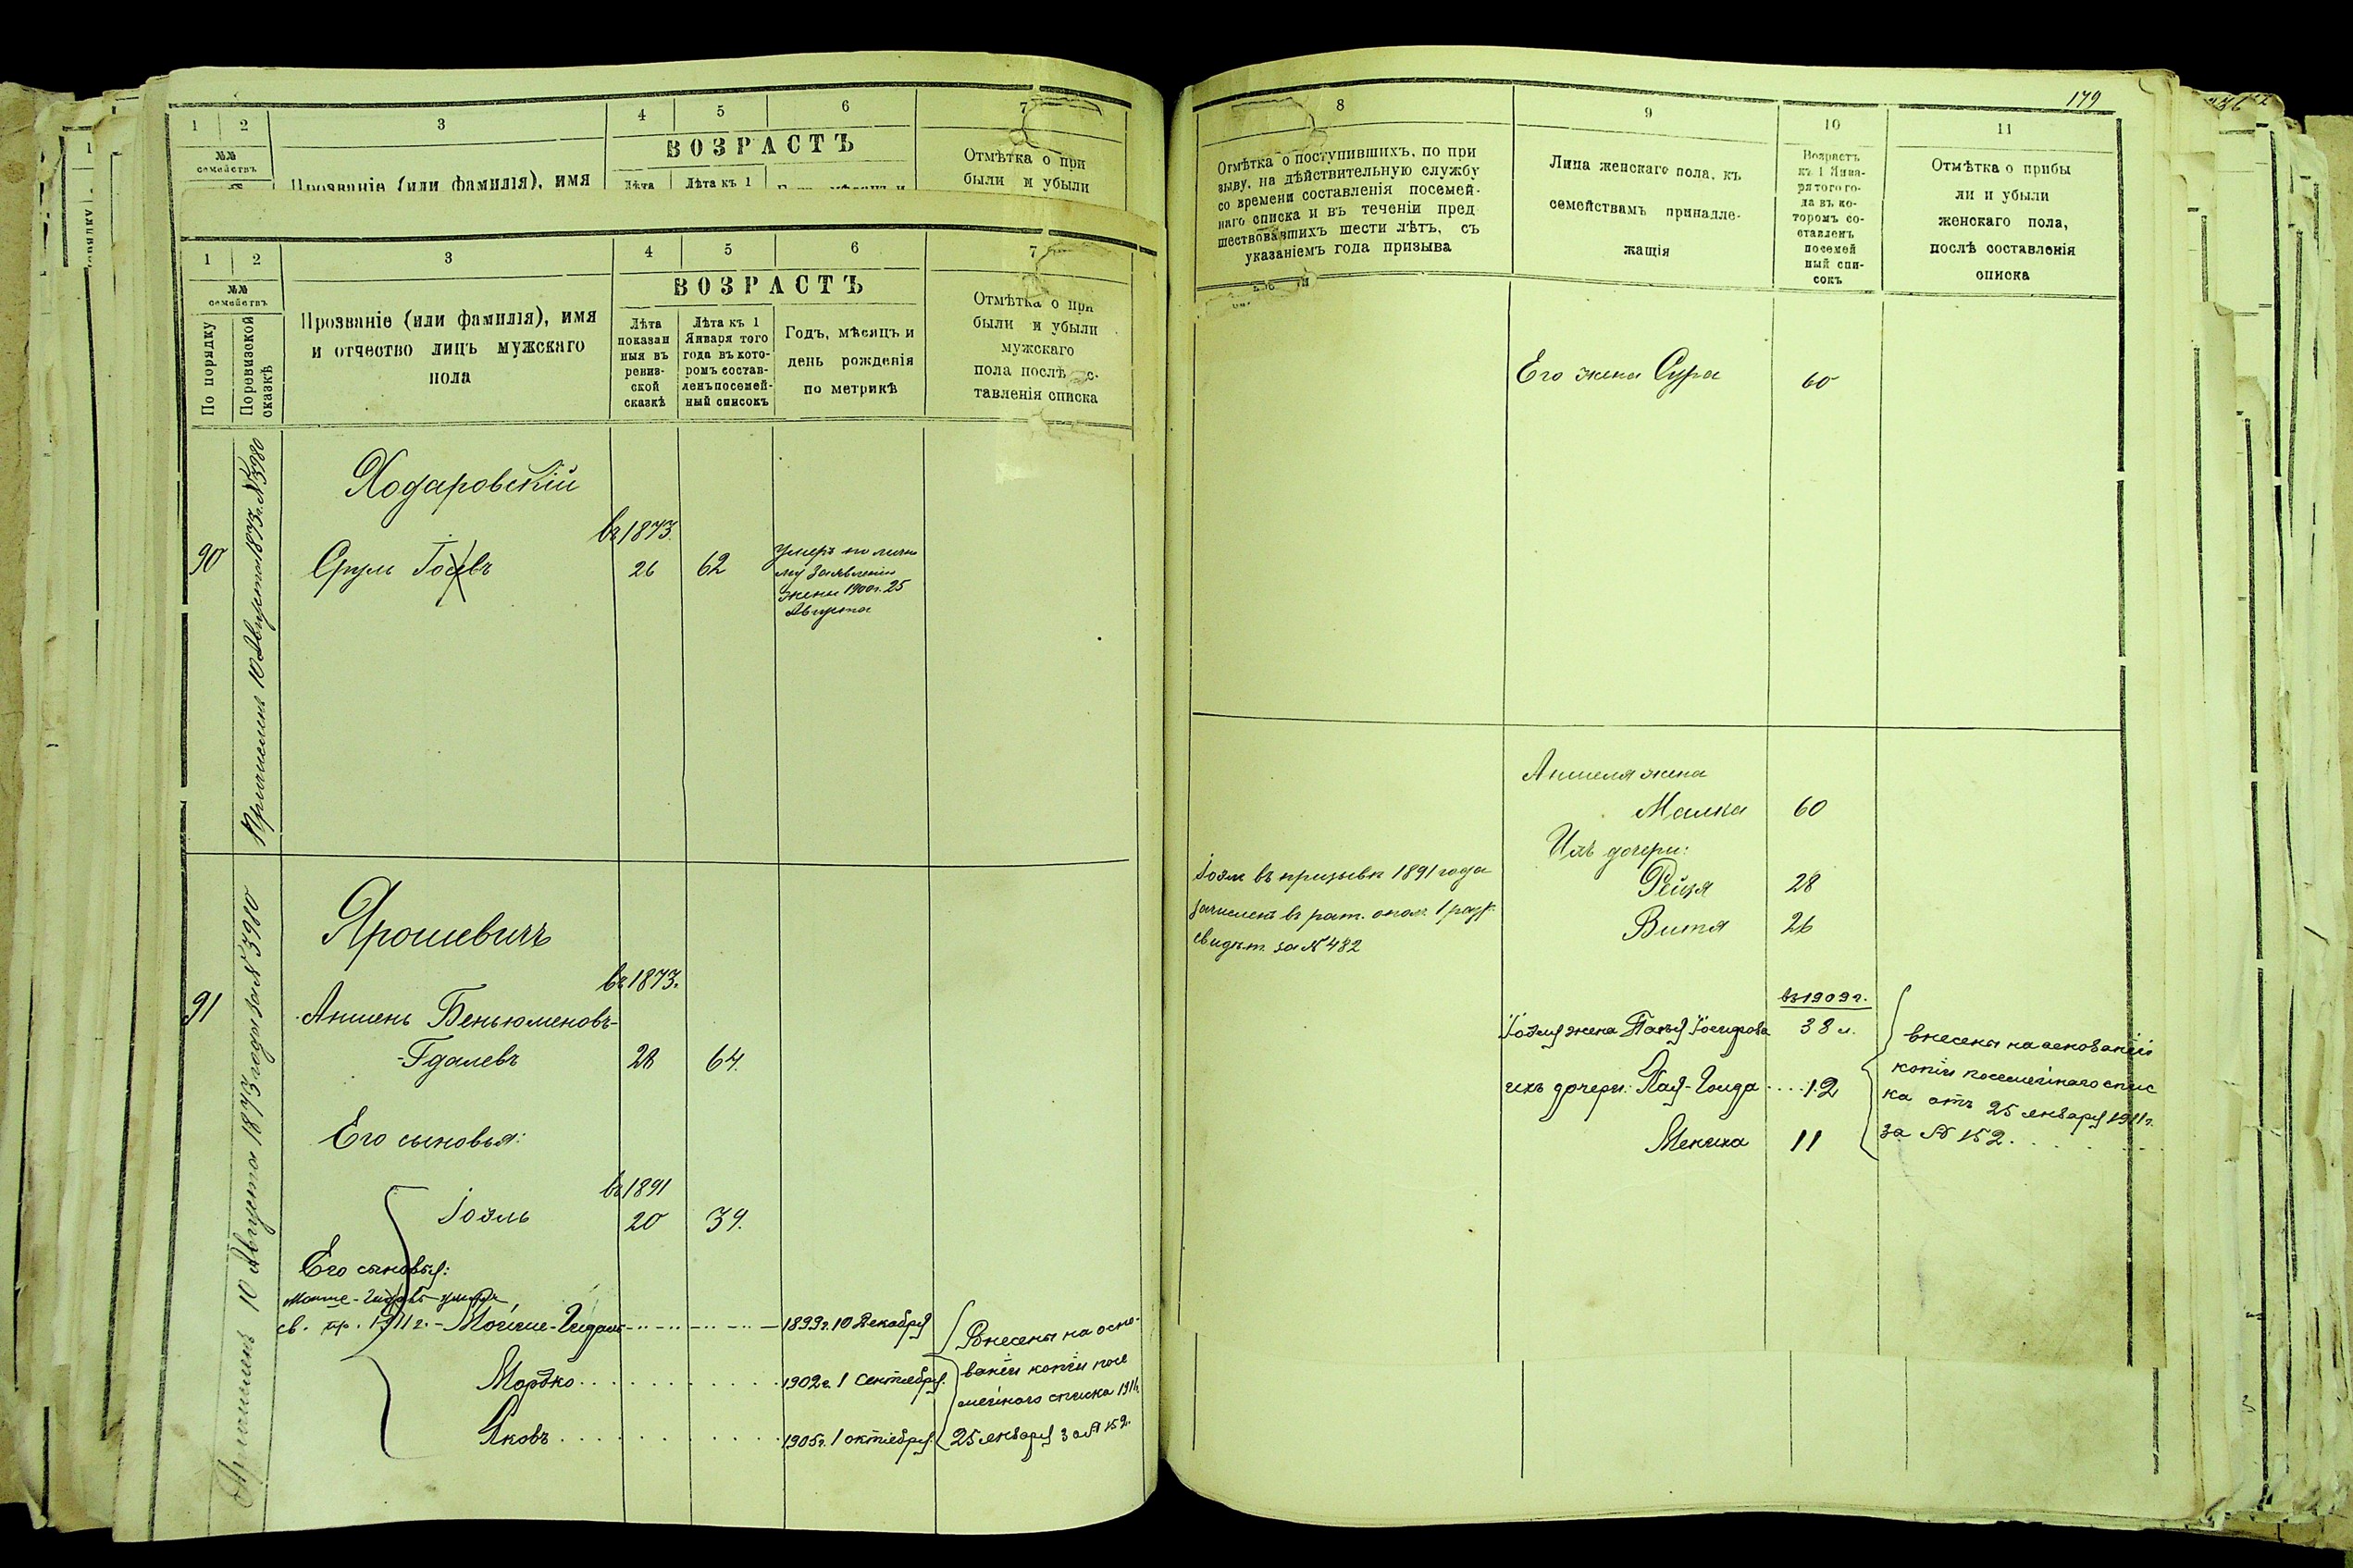 1 2 3 4 5 6 7
№№ семействъ
Прозваніе (или фамилія), имя
ВОЗРАСТЪ
Лѣта
Лѣта къ 1
Отмѣтка о при
были и убыли
1 2 3 4 5 6 7
№№ семействъ
По порядку
По ревизской сказкѣ
Прозваніе (или фамилія), имя
и отчество лицъ мужскаго
пола
ВОЗРАСТЪ
Лѣта
показан
ныя въ
ревиз-
ской
сказкѣ
Лѣта къ 1
Января того
года въ кото-
ромъ состав-
ленъ посемей-
ный списокъ
Годъ, мѣсяцъ и
день рожденія
по метрикѣ
Отмѣтка о при
были и убыли
мужскаго
пола послѣ с-
тавленія списка
Причисленъ 10 Августа 1873 г. № 3980
Ходаровскій
въ 1873.
90 Срулъ 26 62
Умеръ по лично
му заявленію
жены 1900 г. 25
Августа
Причисленъ 10 Августа 1873 года за № 3980
Ярошевичъ
въ 1873.
91 Аншель Беньюменовъ-
-Гдалевъ 28 64.
Его сыновья:
въ 1891
Іоэль 20 39.
Его сыновья:
св. пр. 1911 г. - Мойше-Гидаль 1899 г. 10 Декабря
Мордко 1902 г. 1 Сентября.
Яковъ 1905 г. 1 октября.
Внесены на осно-
ваніи копіи посе
мейнаго списка 1911 г.
25 января за № 152.
179
8 9 10 11
Отмѣтка о поступившихъ, по при
зыву, на дѣйствительную службу
со времени составленія посемей-
наго списка и въ теченіи пред
шествовавшихъ шести лѣтъ, съ
указаніемъ года призыва
Лица женскаго пола, къ
семействамъ принадле-
жащія
Возрастъ
къ 1 Янва-
ря того го-
да въ ко-
торомъ со-
ставленъ
посемей
ный спи-
сокъ
Отмѣтка о прибы
ли и убыли
женскаго пола,
послѣ составленія
списка
Его жена Сура 60
Аншеля жена
Малка 60
Ихъ дочери:
Рейзя 28
Витя 26
Іоэль въ призывѣ 1891 года
зачисленъ въ рат. опол. 1 разр.
свидѣт. за № 482
въ 1909 г.
Іоэля жена 38 л.
ихъ дочери: 12
Мениха 11
внесены на основаніи
копіи посемейнаго спис
ка отъ 25 января 1911 г.
за № 152.